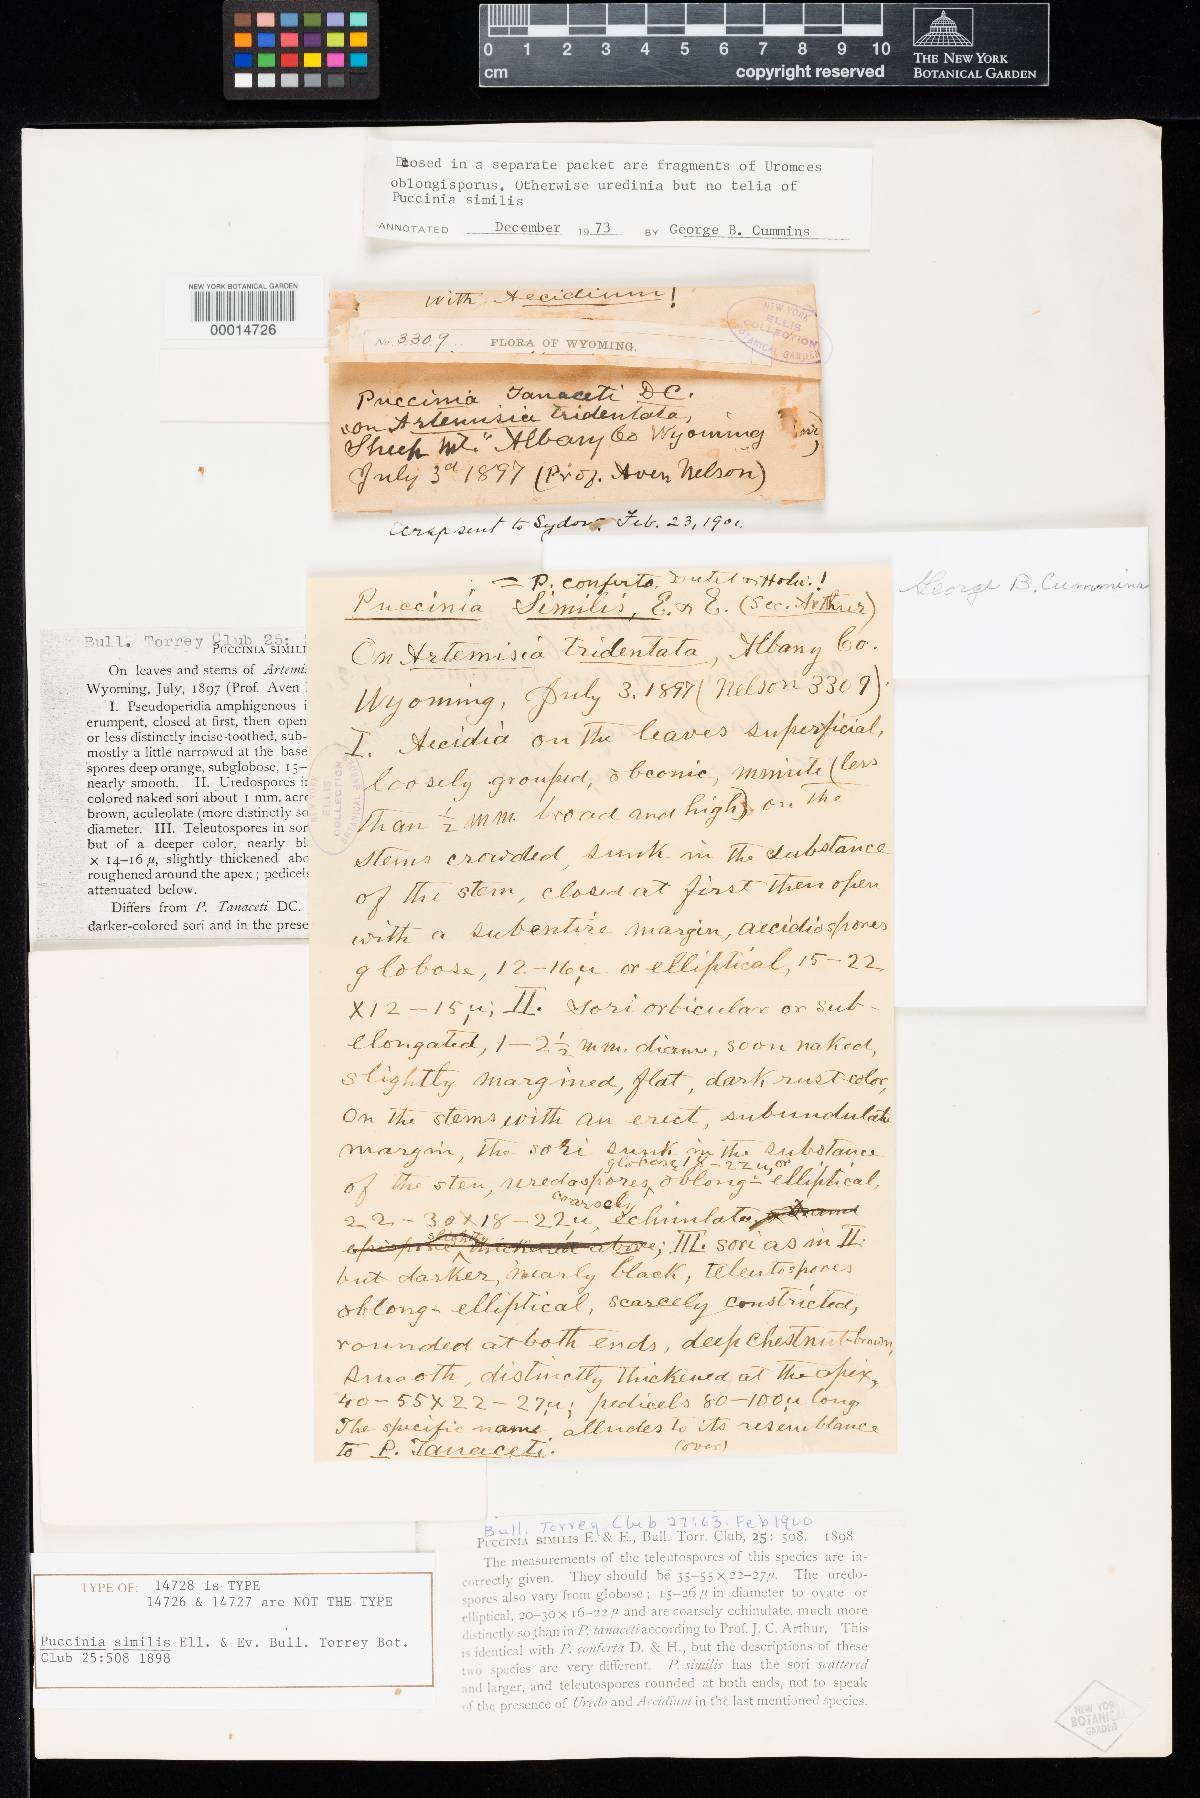 0 1 2 3 4 5 6 7 8 9 10
cm
copyright reserved
THE NEW YORK
BOTANICAL GARDEN
Enclosed in a separate packet are fragments of Uromces
oblongisporus. Otherwise uredinia but no telia of
Puccinia similis
ANNOTATED December 1973 BY George B. Cummins
NEW YORK BOTANICAL GARDEN
00014726
with Aecidium!
No. 3309. FLORA OF WYOMING.
NEW YORK
ELLIS
COLLECTION
BOTANICAL GARDEN
Puccinia Tanaceti DC.
on Artemisia tridentata,
Sheep Mt." Albany Co Wyoming
July 3d 1897 (Prof. Aven Nelson)
scrap sent to Sydow. Feb. 23, 1901.
George B. Cummins
Bull. Torrey Club 25:
PUCCINIA SIMILI
On leaves and stems of Artemis
Wyoming, July, 1897 (Prof. Aven
I. Pseudoperidia amphigenous i
erumpent, closed at first, then open
or less distinctly incise-toothed, sub-
mostly a little narrowed at the base
spores deep orange, subglobose, 15–
nearly smooth. II. Uredospores in
colored naked sori about 1 mm. acro
brown, aculeolate (more distinctly so
diameter. III. Teleutospores in sor
but of a deeper color, nearly bl
× 14–16 μ, slightly thickened abo
roughened around the apex; pedicels
attenuated below.
Differs from P. Tanaceti DC.
darker-colored sori and in the prese
= P. conferta, Holw.!
Puccinia Similis, E. & E. (Sec. Arthur)
On Artemisia tridentata, Albany Co.
Wyoming, July 3. 1897 (Nelson 3309).
I. Aecidia on the leaves superficial,
loosely grouped, obconic, minute (less
than ½ mm. broad and high) on the
stems crowded, sunk in the substance
of the stem, closed at first then open
with a subentire margin, aecidiospores
globose, 12–16μ or elliptical, 15–22
x 12–15μ; II. Sori orbicular or sub-
elongated, 1–2½ mm. diam, soon naked,
slightly margined, flat, dark rust-color,
on the stems with an erect, subundulate
margin, the sori sunk in the substance
globose 18–22μ, or
of the sten, uredospores, oblong-elliptical,
coarsely
22–30x18–22μ, echinulate,
epispore slightly thickened above; III. sori as in II.
but darker, nearly black, teleutospores
oblong-elliptical, scarcely constricted,
rounded at both ends, deep chestnut-brown,
smooth, distinctly thickened at the apex,
40–55x22–27μ; pedicels 80–100μ long
The specific name alludes to its resemblance
to P. Tanaceti.
(over)
NEW YORK
ELLIS
COLLECTION
BOTANICAL GARDEN
Bull. Torrey Club 27:63. Feb 1900
PUCCINIA SIMILIS E. & E., Bull. Torr. Club, 25: 508. 1898
The measurements of the teleutospores of this species are in-
correctly given. They should be 35–55×22–27μ. The uredo-
spores also vary from globose; 15–26 μ in diameter to ovate or
elliptical, 20–30×16–22 μ and are coarsely echinulate, much more
distinctly so than in P. tanaceti according to Prof. J. C. Arthur. This
is identical with P. conferta D. & H., but the descriptions of these
two species are very different. P. similis has the sori scattered
and larger, and teleutospores rounded at both ends, not to speak
of the presence of Uredo and Aecidium in the last mentioned species.
TYPE OF: 14728 is TYPE
14726 & 14727 are NOT THE TYPE
Puccinia similis Ell. & Ev. Bull. Torrey Bot.
Club 25:508 1898
NEW YORK
BOTANICAL
GARDEN